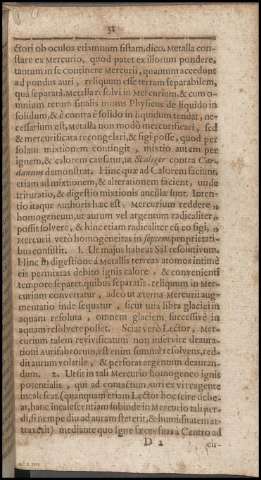 51
ctori ob oculos etiamnum sistam, dico, Metalla con-
stare ex Mercurio, quod patet ex illorum pondere,
tantum in se continere Mercurii, quantum accedunt
ad pondus auri, reliquum esse terram separabilem,
quâ separatâ Metalla resolvi in Mercurium, & cum o-
mnium rerum sit talis motus Physicus de liquido in
solidum, & è contra è solido in liquidum tendat, ne-
cessarium est, Metalla non modò mercurificari, sed
& mercurificata recongelari, & figi posse, quod per
solam mixtionem contingit, mistio autem per
ignem, & calorem causatur, ut Balger contra Car-
danum demonstrat. Hinc quæ ad Calorem faciunt,
etiam ad mixtionem, & alterationem facient, unde
trituratio, & digestio mixtionis ancillæ sunt. Inten-
tio itaque Authoris hæc est, Mercurium reddere
homogeneum, ut aurum vel argentum radicaliter
possit solvere, & hinc etiam radicaliter cū eo figi,
Mercurii verò homogeneitas in septem proprietati-
bus consistit. 1. Ut major habeat Sal resolutivum.
Hinc in digestione à Metallis terreas atomos intimè
eis permixtas debito ignis calore & convenienti
tempore separat. quibus separatis, reliquum in Mer-
curium convertatur, adeo ut æterna Mercurii aug-
mentatio inde sequatur, sicut una libra glaciei in
aquam resoluta, omnem glaciem successivè in
aquam resolvere posset. Sciat verò Lector, Mer-
curium talem revivificatum non inservire deaura-
tioni aurifabrorum, est enim summè resolvens, red-
dit aurum volatile, & perforat argentum deauran-
dum. 2. Ut sit in tali Mercurio homogeneo ignis
potentialis, qui ad contactum auri ex vi reagente
incalescat, (quanquam etiam Lector hoc scire debe-
at, hanc incalescentiam subinde in Mercurio tali per-
di, si nempe diu ad auram steterit, & humiditatem at-
traxerit) mediante quo igne successu à Centro ad
D 2
cir-